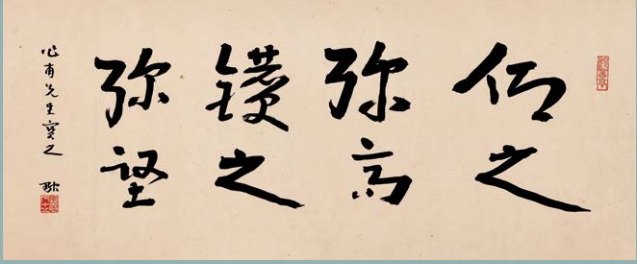 仰之
弥高
鑽之
弥堅
甫先生寶之